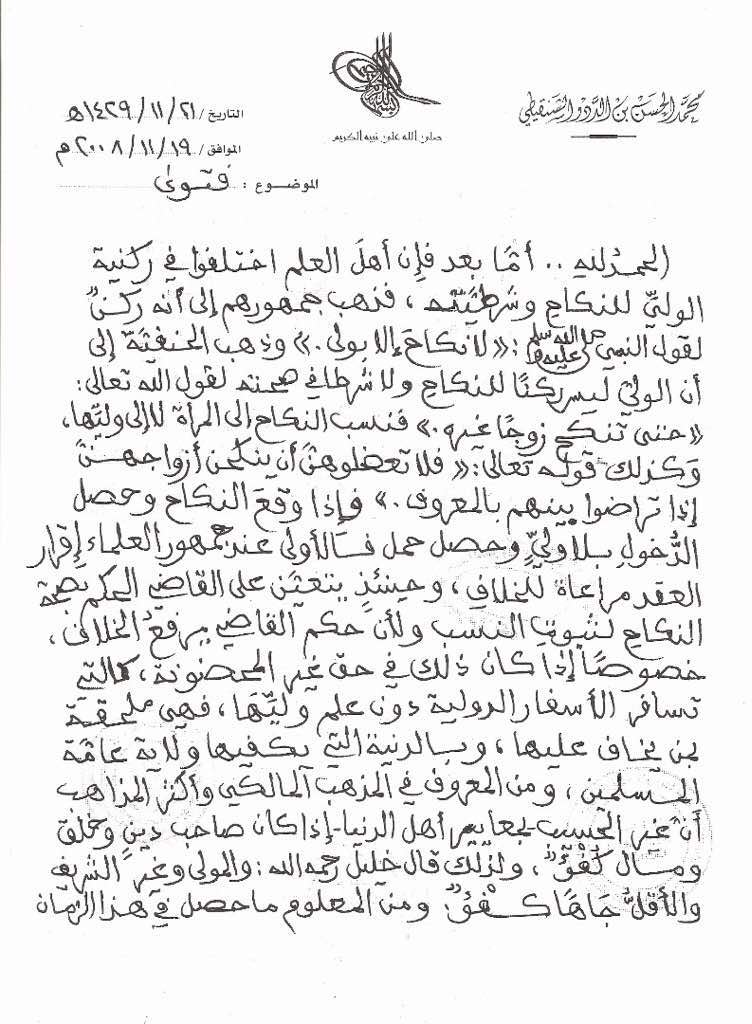 محمد الحسن بن الددو الشنقيطي
صلى الله على نبيه الكريم
التاريخ / ٢١/ ١١/ ١٤٢٩هـ
الموافق / ١٩/ ١١/ ٢٠٠٨م
الموضوع : فتوى
الحمد لله .. أمّا بعد فإن أهلَ العلم اختلفوا في ركنية
الوليِّ للنكاح وشرطيَّته، فذهب جمهورهم إلى أنه ركنٌ
لقول النبي صلى الله عليه وسلم :«لا نكاحَ إلا بولي.» وذهب الحنفيَّة إلى
أن الوليَّ ليس ركنًا للنكاح ولا شرطا في صحته لقول الله تعالى:
«حتى تنكح زوجًا غيره.» فنسب النكاح إلى المرأة لا إلى وليّها،
وكذلك قوله تعالى:«فلا تعضلوهنَّ أن ينكحن أزواجهنَّ
إذا تراضوا بينهم بالمعروف.» فإذا وقعَ النكاح وحصل
الدُّخول بلا وليٍّ وحصل حمل فالأولى عند جمهور العلماء إقرار
العقد مراعاة للخلاف، وحينئذٍ يتعيَّن على القاضي الحكم بصحة
النكاح لثبوت النسب ولأن حكم القاضي يرفعُ الخلاف،
خصوصًا إذا كان ذلك في حق غير المحضونة، كالتي
تسافر الأسفار الدولية دون علم وليِّها، فهي ملحقة
بمن يخاف عليها، وبالدنية التي يكفيها ولاية عامّة
المسلمين، ومن المعروف في المذهب المالكي وأكثر المذاهب
أنّ غير الحسيب بمعايير أهل الدنيا-إذا كان صاحب دينٍ وخلق
ومال كُفْؤٌ، ولذلك قال خليل رحمه الله: والمولى وغير الشريف
والأقلُّ جاهًا كفْؤٌ. ومن المعلوم ما حصل في هذا الزمان